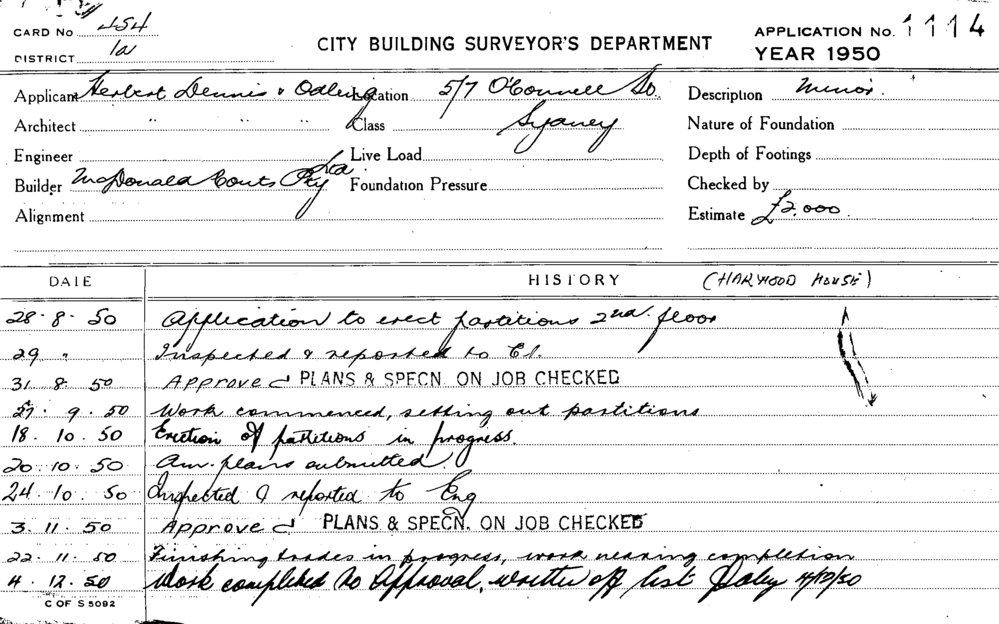 CARD No 454
DISTRICT 1a
CITY BUILDING SURVEYOR'S DEPARTMENT
APPLICATION No. 1114
YEAR 1950
Applicant Herbert Dennis & Odling Location 5/7 O'Connell St. Description Minor.
Architect " " " Class Sydney Nature of Foundation
Engineer Live Load Depth of Footings
Builder McDonald Couts Pty Ltd. Foundation Pressure Checked by
Alignment Estimate £2,000
DATE HISTORY (HARWOOD HOUSE)
28.8.50 Application to erect partitions 2nd. floor
29 " Inspected & reported to
31 8 50 Approved PLANS & SPECN. ON JOB CHECKED
27.9.50 Work commenced, setting out partitions
18.10.50 Erection of partitions in progress.
20.10.50 Am. plans submitted.
24.10.50 Inspected & reported to Eng
3.11.50 Approved PLANS & SPECN. ON JOB CHECKED
22.11.50 Finishing trades in progress, work nearing completion
4.12.50 Work completed to Approval, written off list 4/12/50
C OF S 5092